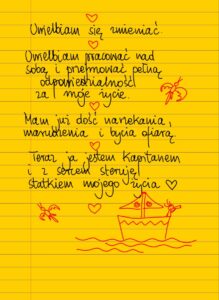 Uwielbiam się zmieniać.
Uwielbiam pracować nad
sobą i przejmować pełną
odpowiedzialność
za moje życie.
Mam już dość narzekania,
marudzenia i bycia ofiarą,
Teraz ja jestem Kapitanem
i z sercem steruję
statkiem mojego życia ♡